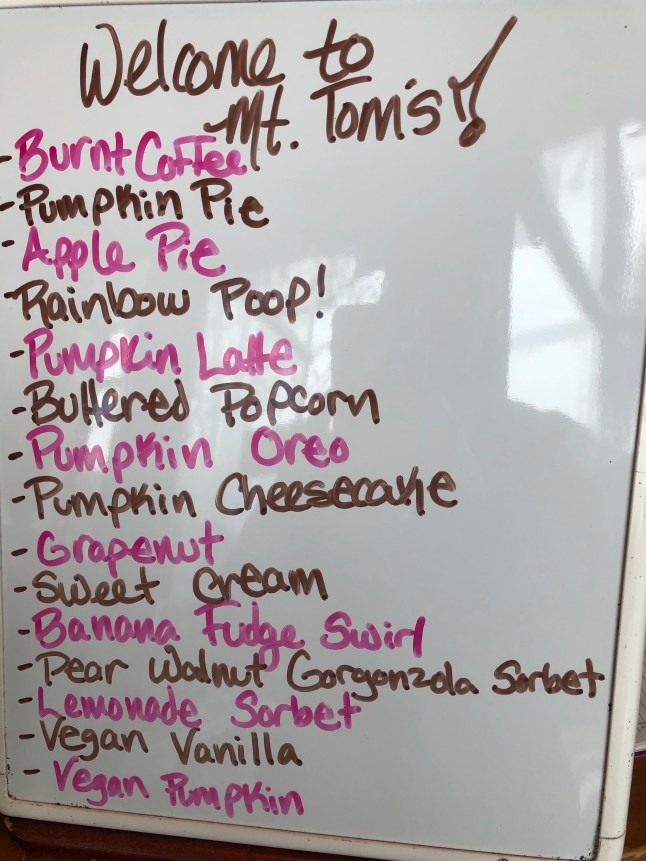 Welcome to
Mt. Tom's!
- Burnt Coffee
- Pumpkin Pie
- Apple Pie
- Rainbow Poop!
- Pumpkin Latte
- Buttered Popcorn
- Pumpkin Oreo
- Pumpkin Cheesecake
- Grapenut
- Sweet Cream
- Banana Fudge Swirl
- Pear Walnut Gorgonzola Sorbet
- Lemonade Sorbet
- Vegan Vanilla
- Vegan Pumpkin